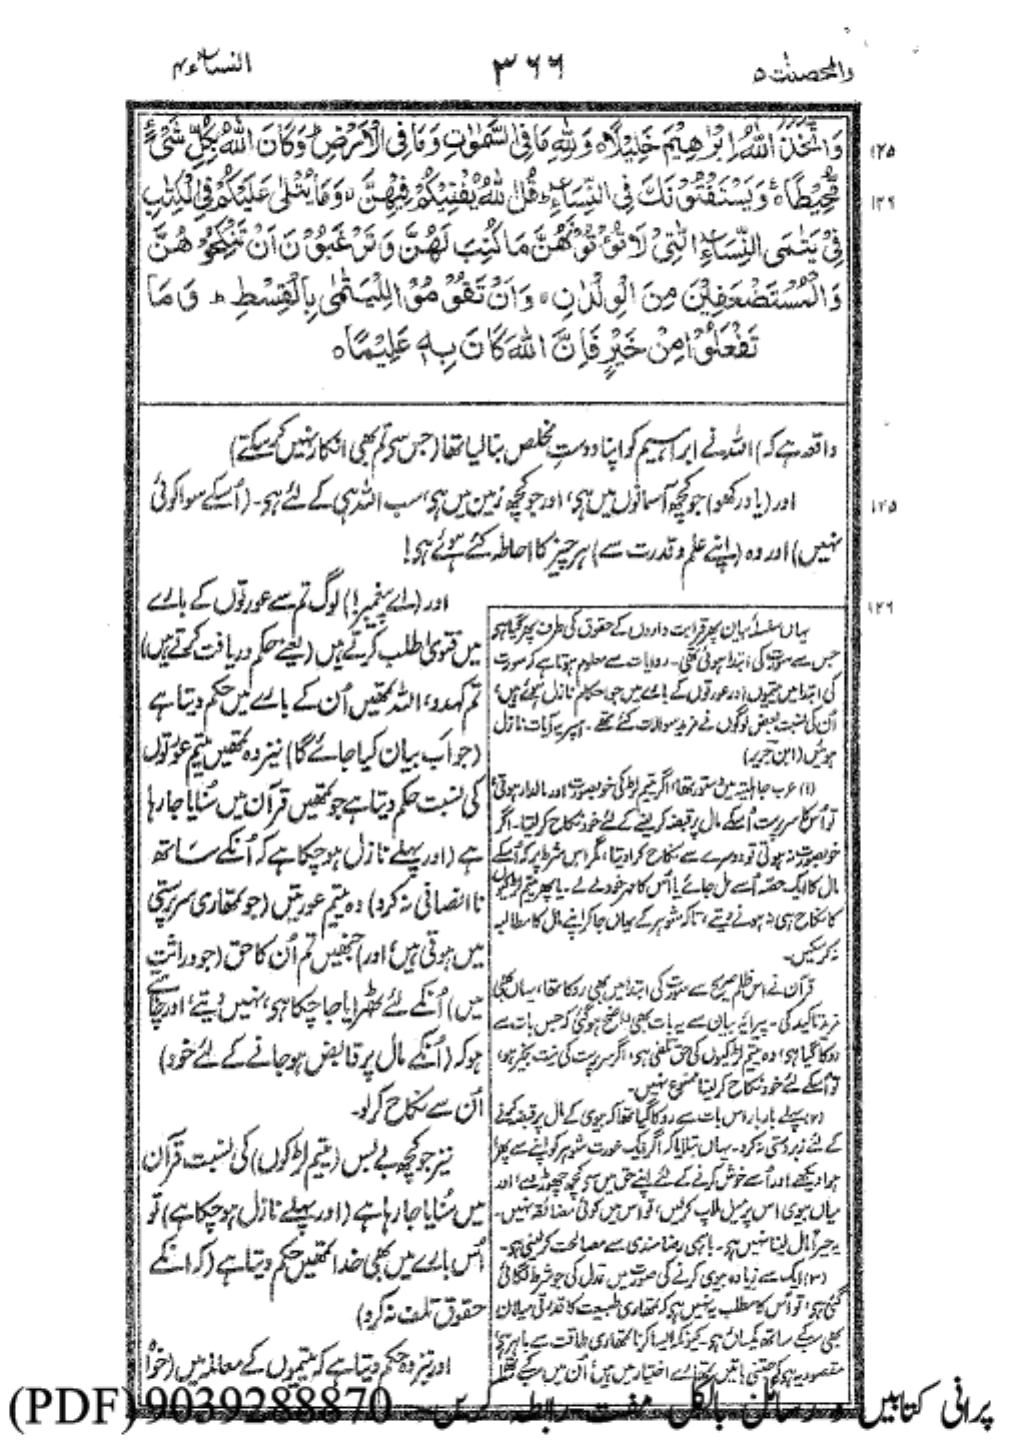 والمحصنٰت ۵
۳۶۶
النساء ۴
وَاتَّخَذَ اللّٰهُ اِبْرٰهِيْمَ خَلِيْلًا۝ وَلِلّٰهِ مَا فِي السَّمٰوٰتِ وَمَا فِي الْاَرْضِ ؕ وَكَانَ اللّٰهُ بِكُلِّ شَيْءٍ
۱۲۵
مُّحِيْطًا۝ وَيَسْتَفْتُوْنَكَ فِي النِّسَآءِ ؕ قُلِ اللّٰهُ يُفْتِيْكُمْ فِيْهِنَّ ۙ وَمَا يُتْلٰى عَلَيْكُمْ فِي الْكِتٰبِ
۱۲۶
فِيْ يَتٰمَى النِّسَآءِ الّٰتِيْ لَا تُؤْتُوْنَهُنَّ مَا كُتِبَ لَهُنَّ وَتَرْغَبُوْنَ اَنْ تَنْكِحُوْهُنَّ
وَالْمُسْتَضْعَفِيْنَ مِنَ الْوِلْدَانِ ۙ وَاَنْ تَقُوْمُوْا لِلْيَتٰمٰى بِالْقِسْطِ ؕ وَمَا
تَفْعَلُوْا مِنْ خَيْرٍ فَاِنَّ اللّٰهَ كَانَ بِهٖ عَلِيْمًا۝
واقعہ ہے کہ) اللہ نے ابراہیم کو اپنا دوست مخلص بنا لیا تھا (جس سے تم بھی انکار نہیں کرسکتے)
اور (یاد رکھو) جو کچھ آسمانوں میں ہی، اور جو کچھ زمین میں ہی، سب اللہ ہی کے لئے ہی۔ (اُسکے سوا کوئی
۱۲۵
نہیں) اور وہ (اپنے علم و قدرت سے) ہر چیز کا احاطہ کئے ہوئے ہی!
اور (اے پیغمبر!) لوگ تم سے عورتوں کے بارے
۱۲۶
میں فتویٰ طلب کرتے ہیں (یعنے حکم دریافت کرتے ہیں)
تم کہدو، اللہ تمھیں اُن کے بارے میں حکم دیتا ہے
(جو اَب بیان کیا جائے گا) نیز وہ تمھیں یتیم عورتوں
کی نسبت حکم دیتا ہے جو تمھیں قرآن میں سُنایا جا رہا
ہے (اور پہلے نازل ہوچکا ہے کہ اُنکے ساتھ
نا انصافی نہ کرو) وہ یتیم عورتیں (جو تمھاری سرپرستی
میں ہوتی ہیں، اور) جنھیں تم اُن کا حق (جو وراثت
میں) اُنکے لئے ٹھرایا جا چکا ہی، نہیں دیتے، اور چاہتے
ہو کہ (اُنکے مال پر قابض ہو جانے کے لئے خود)
اُن سے نکاح کرلو۔
نیز جو کچھ بے بس (یتیم لڑکوں) کی نسبت قرآن
میں سُنایا جا رہا ہے (اور پہلے نازل ہوچکا ہے) تو
اُس بارے میں بھی خدا تمھیں حکم دیتا ہے (کہ اُنکے
حقوق تلف نہ کرو)
اور نیز وہ حکم دیتا ہے کہ یتیموں کے معاملہ میں (خواہ
یہاں سلسلۂ بیان پھر قرابت داروں کے حقوق کی طرف پھر گیا ہو
جس سے سورت کی ابتدا ہوئی تھی۔ روایات سے معلوم ہوتا ہے کہ سورت
کی ابتدا میں یتیموں اور عورتوں کے بارے میں جو احکام نازل ہوئے ہیں،
اُن کی نسبت بعض لوگوں نے مزید سوالات کئے تھے۔ اسپر یہ آیات نازل
ہوئیں (ابن جریر)
(۱) عرب جاہلیتہ میں دستور تھا، اگر یتیم لڑکی خوبصورت اور مالدار ہوتی
تو اُس کا سرپرست اُسکے مال پر قبضہ کرلینے کے لئے خود نکاح کرلیتا۔ اگر
خوبصورت نہ ہوتی تو دوسرے سے نکاح کرا دیتا، مگر اس شرط پر کہ اُسکے
مال کا ایک حصہ اُسے مل جائے یا اُس کا مہر خود لے لے۔ یا پھر یتیم لڑکیوں
کا نکاح ہی نہ ہونے دیتے، تاکہ شوہر کے یہاں جاکر اپنے مال کا مطالبہ
نہ کرسکیں۔
قرآن نے اس ظلم صریح سے سورت کی ابتدا میں بھی روکا تھا، یہاں بھی
مزید تاکید کی۔ پیرایۂ بیان سے یہ بات بھی واضح ہوگئی کہ جس بات سے
روکا گیا ہو، وہ یتیم لڑکیوں کی حق تلفی ہو، اگر سرپرست کی نیت بخیر ہو،
تو اُسکے لئے خود نکاح کرلینا ممنوع نہیں۔
(۲) پہلے بار بار اس بات سے روکا گیا تھا کہ بیوی کے مال پر قبضہ کرنے
کے لئے زبردستی نہ کرو۔ یہاں بتلایا کہ اگر ایک عورت شوہر کو اپنے سے پھرا
ہوا دیکھے اور اُسے خوش کرنے کے لئے اپنے حق میں سے کچھ چھوڑ دے، اور
میاں بیوی اس پر میل ملاپ کرلیں، تو اس میں کوئی مضائقہ نہیں۔
یہ جبراً مال لینا نہیں ہو۔ باہمی رضامندی سے مصالحت کرلینی ہو۔
(۳) ایک سے زیادہ بیوی کرنے کی صورت میں عدل کی جو شرط لگائی
گئی ہو، تو اُس کا مطلب یہ نہیں ہو کہ تمھاری طبیعت کا قدرتی میلان
بھی سب کے ساتھ یکساں ہو۔ کیونکہ ایسا کرنا تمھاری طاقت سے باہر ہو،
مقصود یہ ہو کہ جتنی باتیں تمھارے اختیار میں ہیں، اُن میں سب کے
پرانی کتابیں و رسائل بالکل مفت رابطہ کریں۔ 9039288870 (PDF)